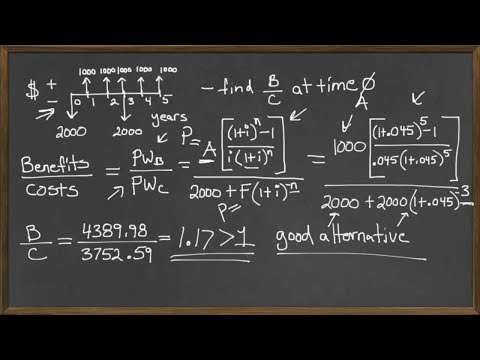 1000 1000 1000 1000 1000
$ + -
0 1 2 3 4 5
2000 2000 years
- find B/C at time 0
Benefits/Costs = PW_B/PW_C = A[((1+i)^n - 1)/(i(1+i)^n)]/(2000 + F(1+i)^-n) = 1000[((1+.045)^5 - 1)/(.045(1+.045)^5)]/(2000 + 2000(1+.045)^-3)
P=
A
P=
B/C = 4389.98/3752.59 = 1.17 > 1 good alternative